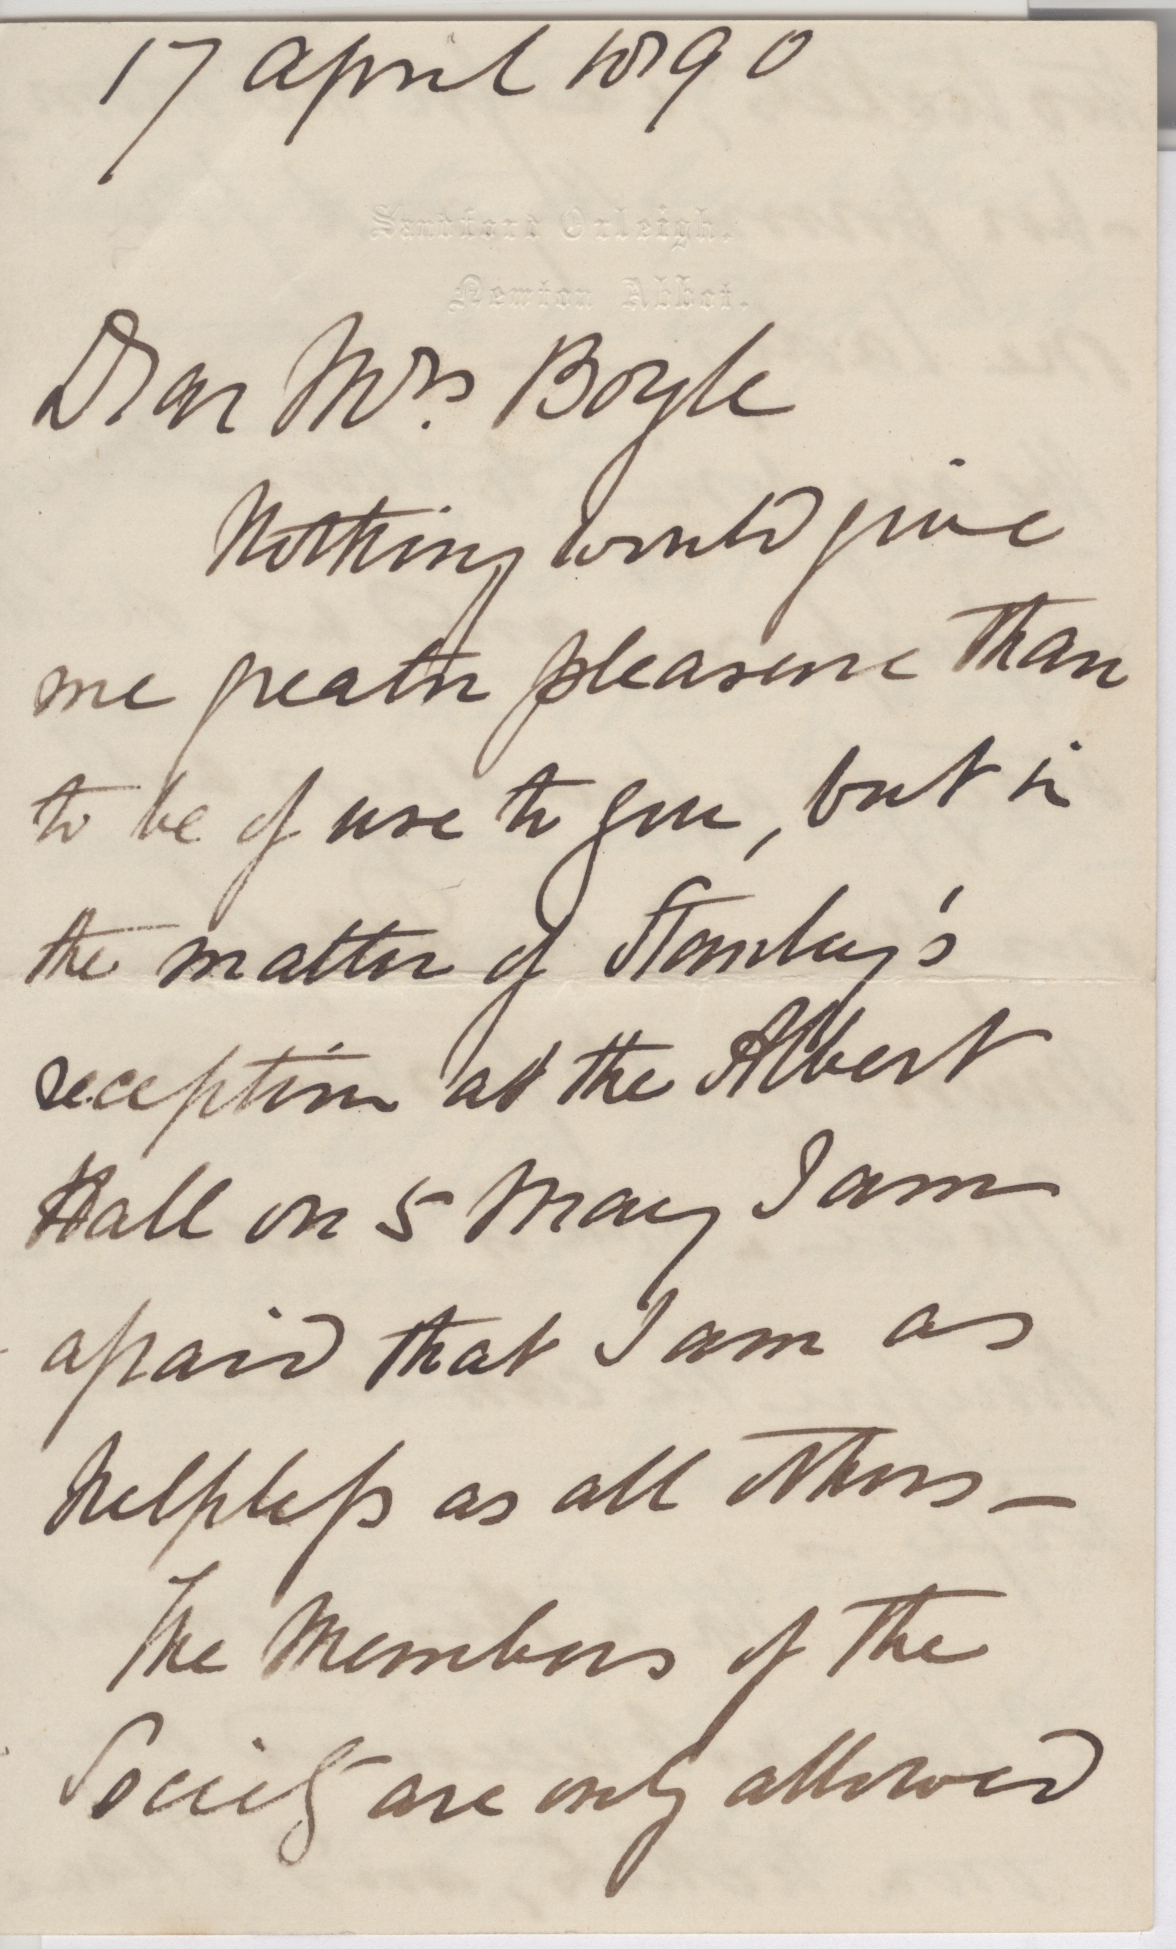 17 April 1890
Sandford Orleigh.
Newton Abbot.
Dear Mrs. Boyle
Nothing would give
me greater pleasure than
to be of use to you, but in
the matter of Stanley's
reception at the Albert
Hall on 5 May I am
afraid that I am as
helpless as all others —
The Members of the
Society are only allowed